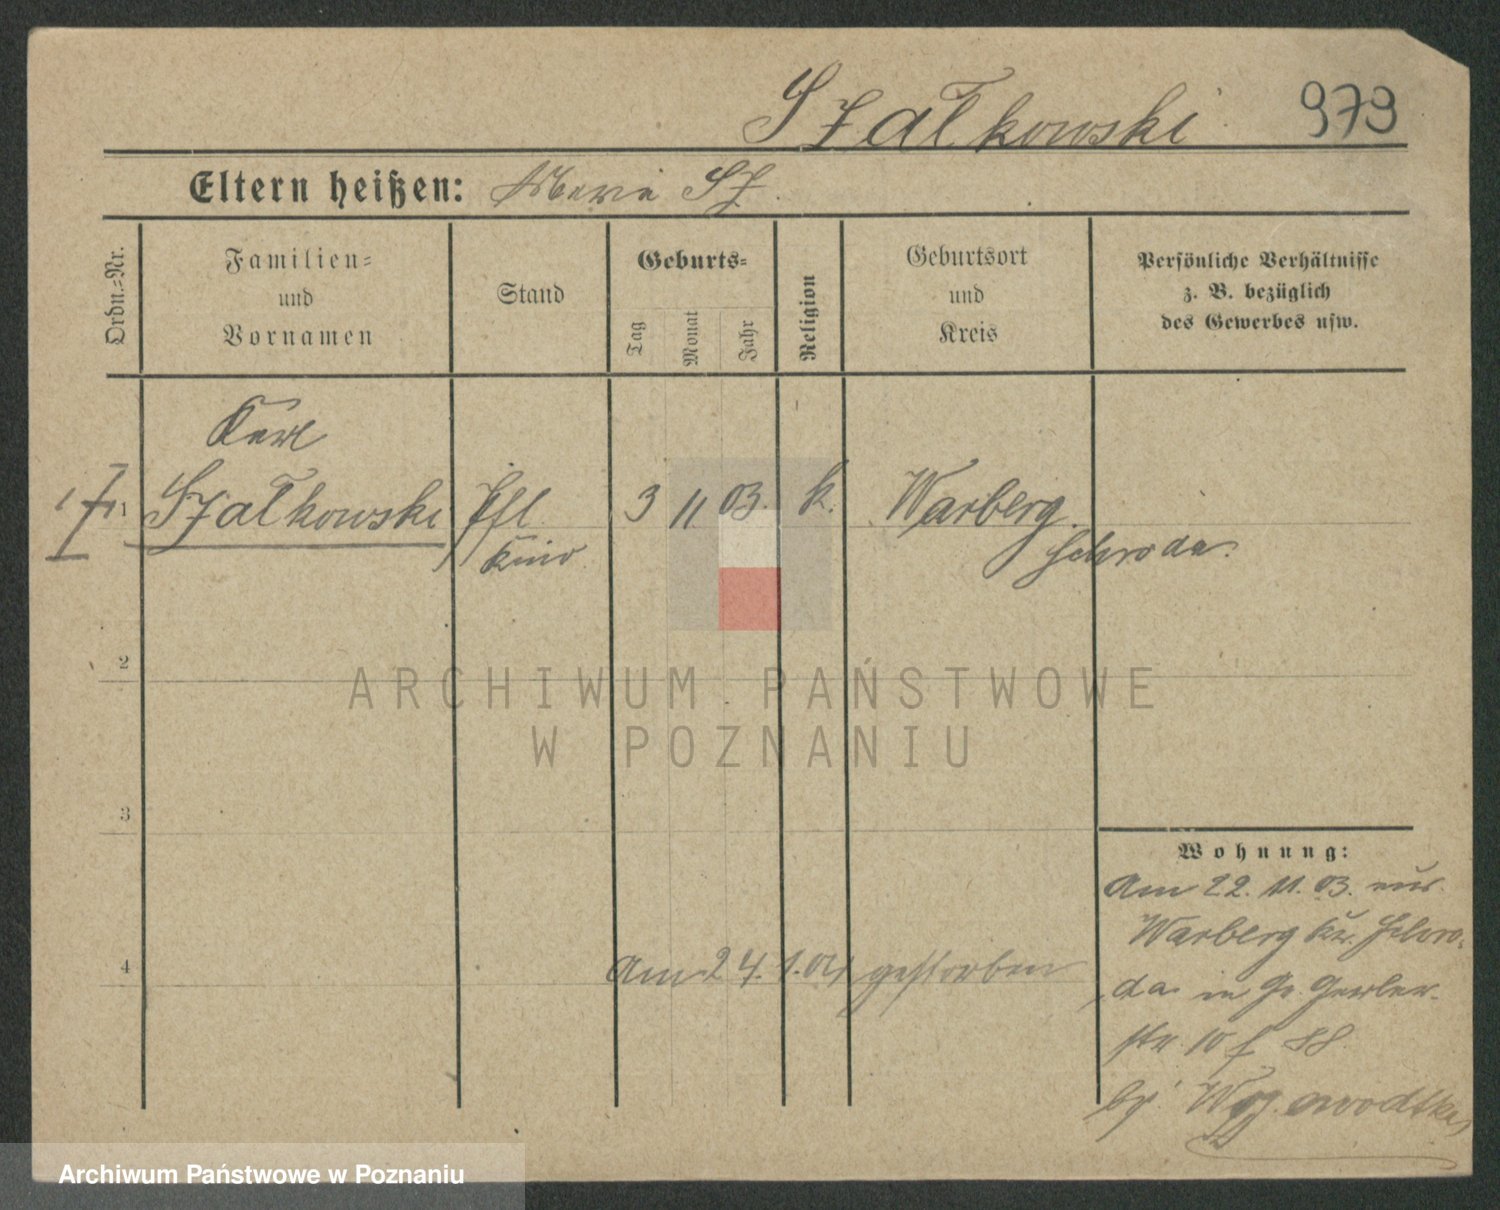 Szatkowski 979
Eltern heißen: Marie Sz.
Ordn.-Nr.
Familien-
und
Vornamen
Stand
Geburts-
Tag
Monat
Jahr
Religion
Geburtsort
und
Kreis
Persönliche Verhältnisse
z. B. bezüglich
des Gewerbes usw.
Karl
1 Szatkowski Pfl. 3 11 03. k. Warberg.
Kind Schroda.
2
ARCHIWUM PAŃSTWOWE
W POZNANIU
3
Wohnung:
Am 22. 11. 03. aus
Warberg Kr. Schro-
4 Am 24. 1. 04 gestorben
da in Gr. Gerber-
str. 10
bei
Archiwum Państwowe w Poznaniu